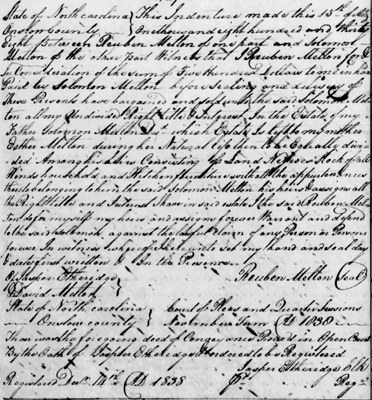 State of North carolina } This Indenture made this 15th of
Onslow County } One thousand eight hundred and thirty
Eight Between Reuben Melton of one part and Solomon
Melton of the other part Witnesseth that I Reuben Melton for &
In Consideration of the sum of Five Hundred Dollars to me in hand
Paid by Solomon Melton before sealing and delivery of
these Presents have bargained and sold unto the said Solomon Mel
ton all my undivided Right Title & Interest In the Estate of my
Father Solomon Melton which Estate Is left to my mother
Esther Melton during her Natural life then to be Equally divi
ded Among his heirs Consisting of Land Negroes Stock of all
Kinds household and Kitchen furniture with all the appurtenances
thereto belonging to him the said Solomon Melton his heirs & assigns all
the Right Titles and Interest I have in said estate I the said Reuben Mel
ton do for myself my heirs and assigns forever Warrant and defend
to the said Solomon against the lawful claim of any Person or Persons
forever In witness whereof I hereunto set my hand and seal day
& date first written In the Presence
Jasper Etheredge } Reuben Melton (Seal)
David Melton
State of North carolina } Court of Pleas and Quarter Sessions
Onslow county } November Term AD 1838
Then was the foregoing deed of Conveyance Proved in Open Court
By the Oath of Jasper Etheredge & ordered to be Registered
Jasper Etheredge Clk
Registered Decr. 14th AD 1838 Regr